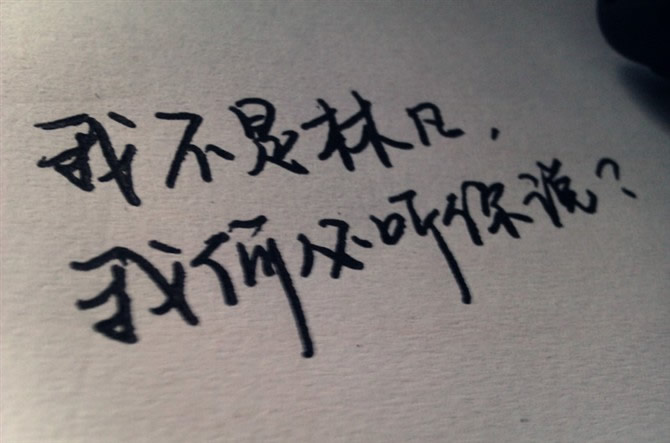 我不是林凡，
我何必听你说？